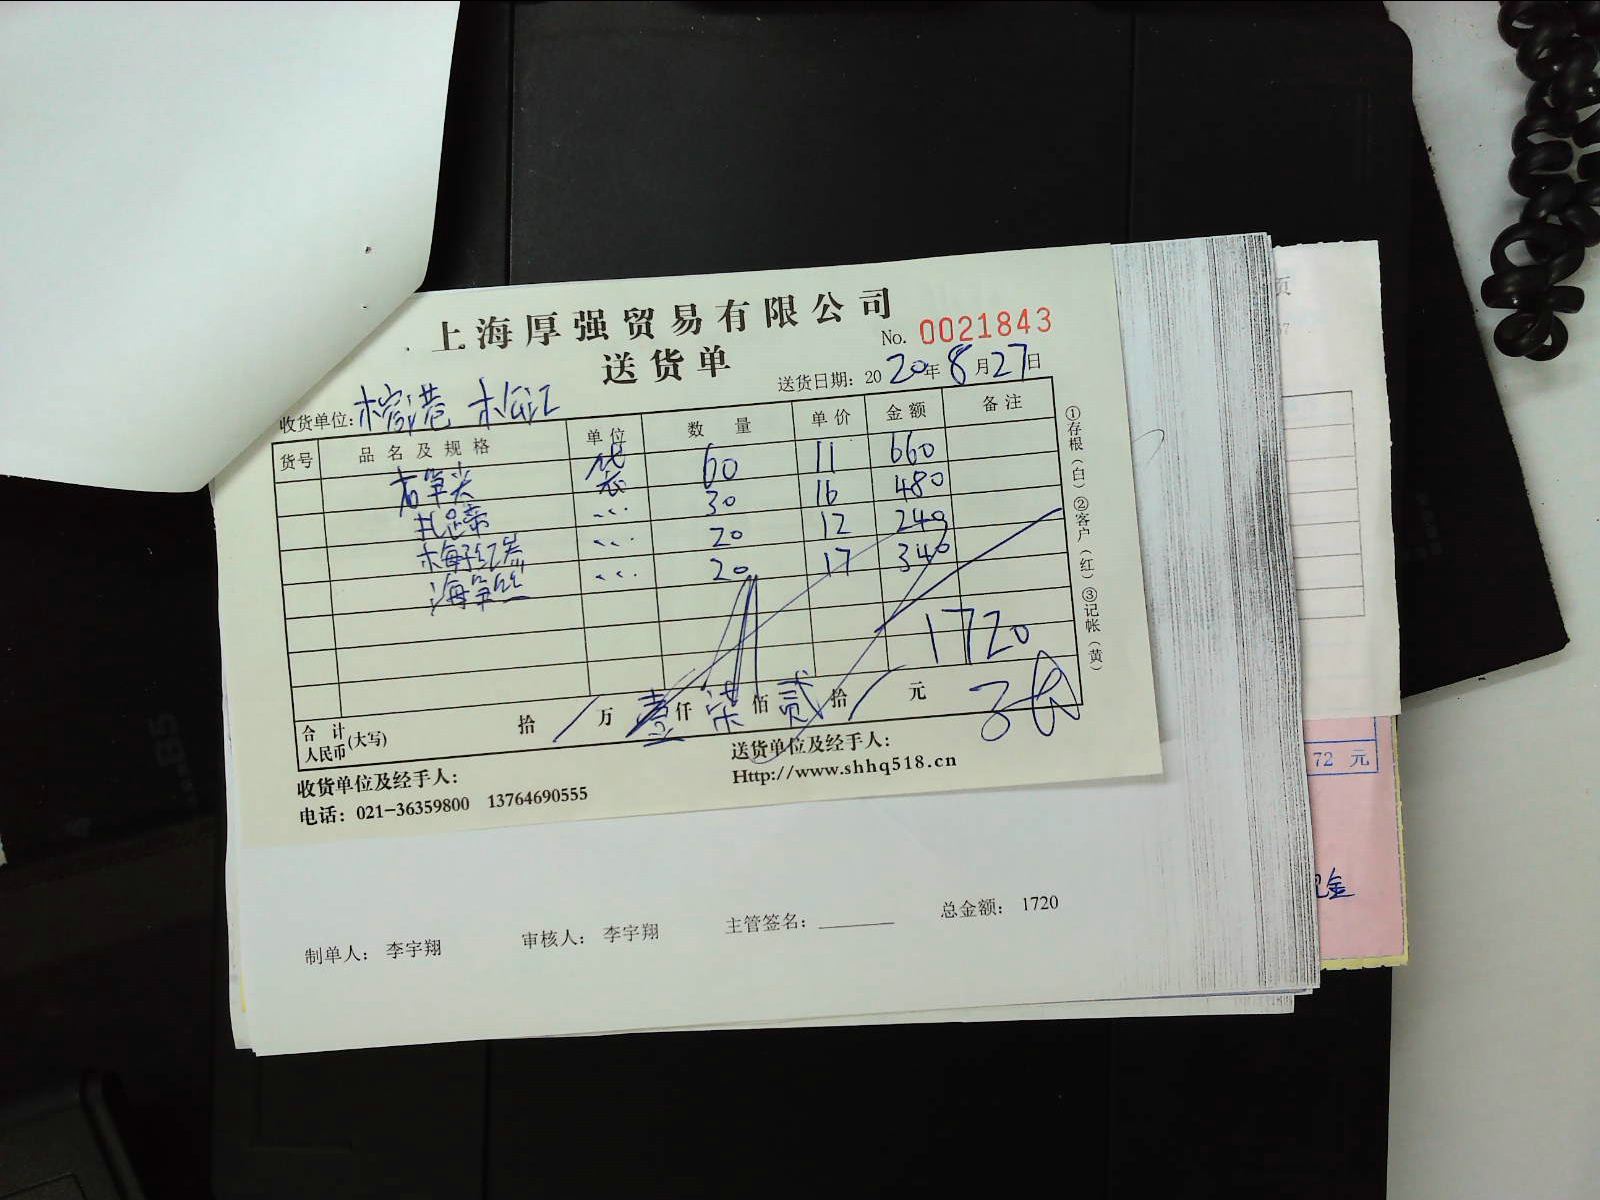 上海厚强贸易有限公司
送货单
No. 0021843
送货日期: 2020年8月27日
收货单位: 榕港 松江
货号 品名及规格 单位 数量 单价 金额 备注
右笋尖 袋 60 11 660
扎蹄 〃 30 16 480
梅干红岩 〃 20 12 240
海笋丝 〃 20 17 340
1720
合计人民币(大写) 拾 / 万 壹仟 柒佰 贰拾 / 元
收货单位及经手人:
送货单位及经手人:
电话: 021-36359800 13764690555
Http://www.shhq518.cn
①存根(白)②客户(红)③记帐(黄)
制单人: 李宇翔 审核人: 李宇翔 主管签名: 总金额: 1720
页
72 元
金